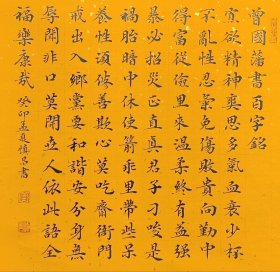 曾國藩書百字銘
寡欲精神爽思多氣血衰少杯
不亂性忍氣免傷財貴向勤中
得富從儉里來溫柔終有益強
暴必招災正直真君子刁唆是
禍胎暗中休使箭乖里帶些呆
養性須修善欺心莫吃齋衙門
戒出入鄉黨要和諧安分身無
辱閑非口莫開世人依此語全
福樂康哉 癸卯孟夏慎 書